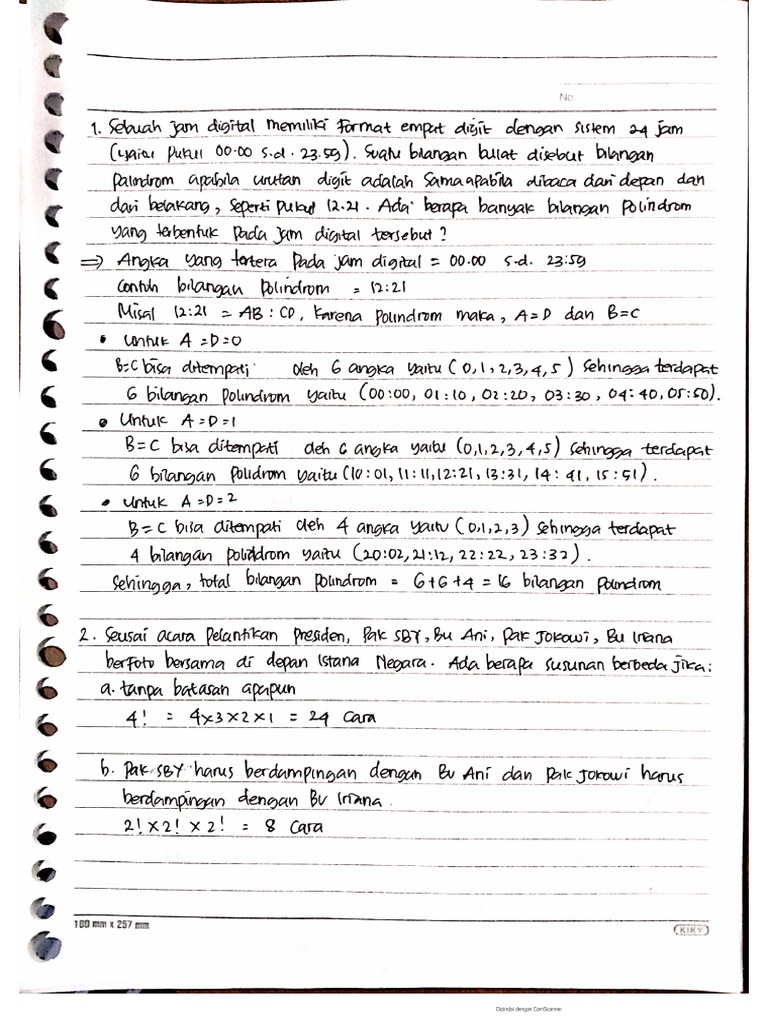 No.
1. Sebuah jam digital memiliki format empat digit dengan sistem 24 jam
(yaitu pukul 00.00 s.d. 23.59). Suatu bilangan bulat disebut bilangan
palindrom apabila urutan digit adalah sama apabila dibaca dari depan dan
dari belakang, seperti pukul 12.21. Ada berapa banyak bilangan polindrom
yang terbentuk pada jam digital tersebut?
⇒ Angka yang tertera pada jam digital = 00.00 s.d. 23:59
Contoh bilangan polindrom = 12:21
Misal 12:21 = AB : CD, karena polindrom maka, A=D dan B=C
• Untuk A=D=0
B=C bisa ditempati oleh 6 angka yaitu (0,1,2,3,4,5) sehingga terdapat
6 bilangan polindrom yaitu (00:00, 01:10, 02:20, 03:30, 04:40, 05:50).
• Untuk A=D=1
B=C bisa ditempati oleh 6 angka yaitu (0,1,2,3,4,5) sehingga terdapat
6 bilangan polidrom yaitu (10:01, 11:11, 12:21, 13:31, 14:41, 15:51).
• Untuk A=D=2
B=C bisa ditempati oleh 4 angka yaitu (0,1,2,3) sehingga terdapat
4 bilangan polindrom yaitu (20:02, 21:12, 22:22, 23:32).
Sehingga, total bilangan polindrom = 6+6+4 = 16 bilangan polindrom
2. Seusai acara pelantikan presiden, Pak SBY, Bu Ani, Pak Jokowi, Bu Iriana
berfoto bersama di depan Istana Negara. Ada berapa susunan berbeda jika:
a. tanpa batasan apapun
4! = 4×3×2×1 = 24 cara
b. Pak SBY harus berdampingan dengan Bu Ani dan Pak Jokowi harus
berdampingan dengan Bu Iriana.
2! × 2! × 2! = 8 cara
180 mm x 257 mm
KIKY
Dipindai dengan CamScanner